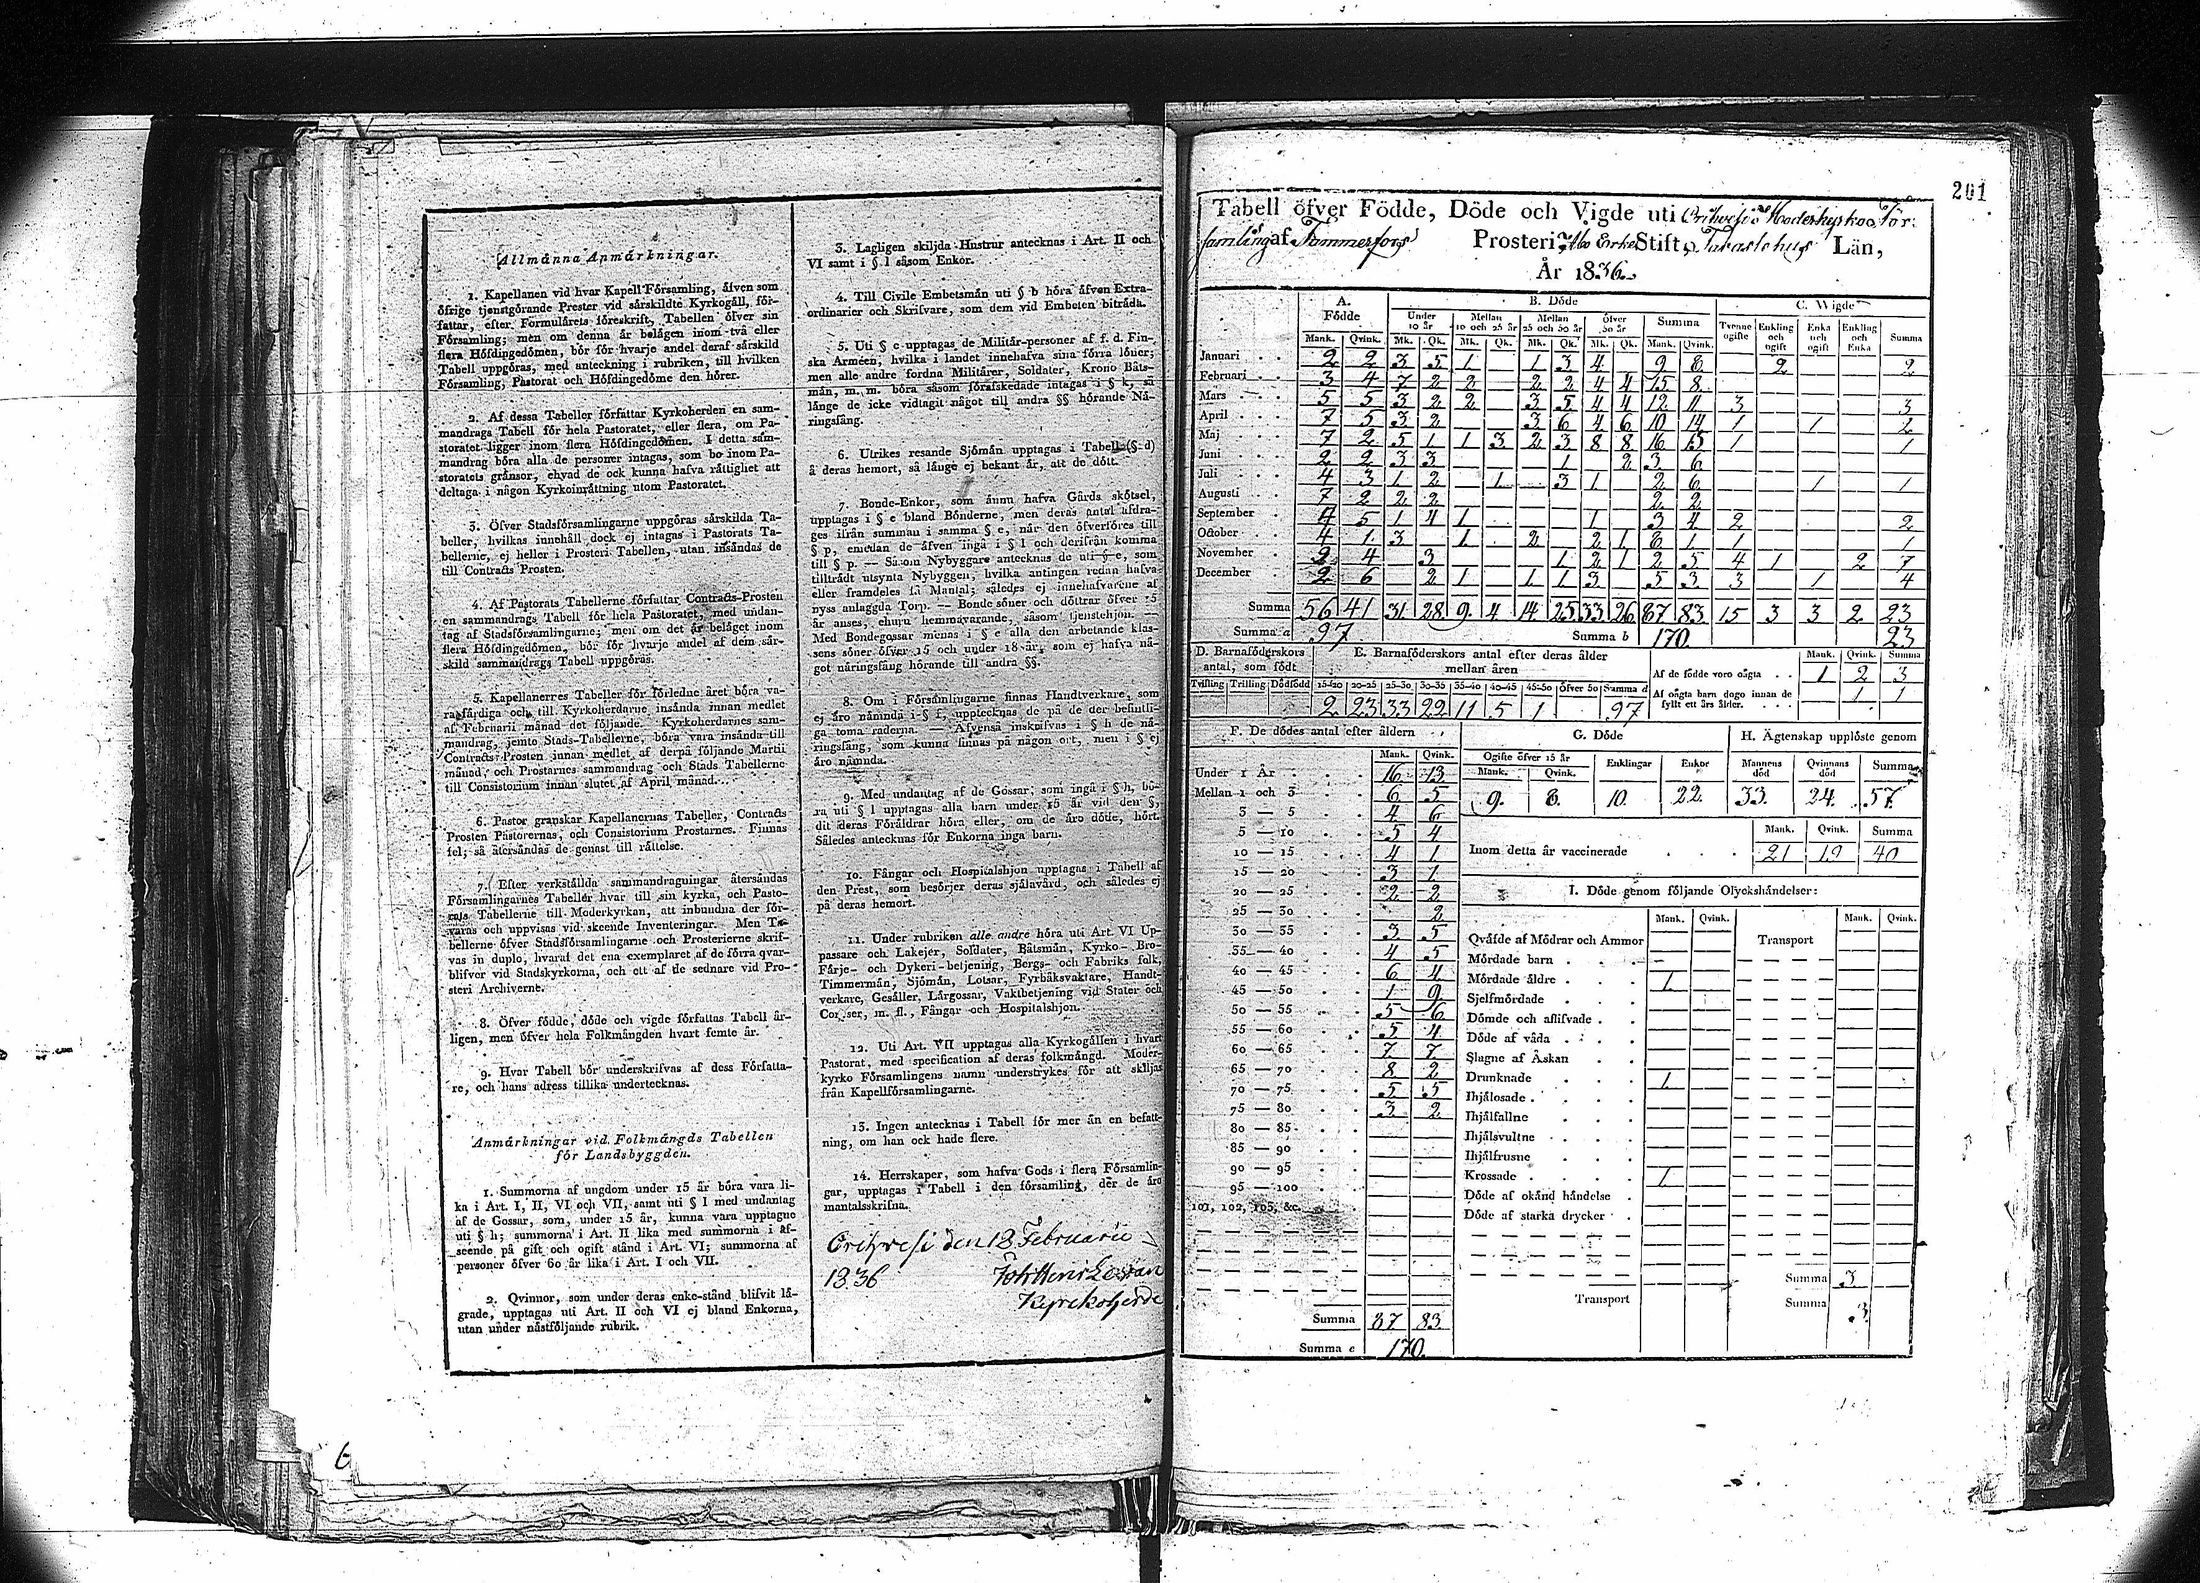 Allmänna Anmärkningar.
1. Kapellanen vid hvar Kapell Församling, äfven som
öfrige tjenstgörande Prester vid särskildte Kyrkogäll, för-
fattar, efter Formulärets föreskrift, Tabellen öfver sin
Församling; men om denna är belägen inom två eller
flera Höfdingedömen, bör för hvarje andel deraf särskild
Tabell uppgöras, med anteckning i rubriken, till hvilken
Församling, Pastorat och Höfdingedöme den hörer.
2. Af dessa Tabeller författar Kyrkoherden en sam-
mandrags Tabell för hela Pastoratet, eller flera, om Pa-
storatet ligger inom flera Höfdingedömen. I detta sam-
mandrag böra alla de personer intagas, som bo inom Pa-
storatets gränsor, ehvad de ock kunna hafva rättighet att
deltaga i någon Kyrkoinrättning utom Pastoratet.
3. Öfver Stadsförsamlingarne uppgöras särskilda Ta-
beller, hvilkas innehåll dock ej intagas i Pastorats Ta-
bellerne, ej heller i Prosteri Tabellen, utan insändas de
till Contracts Prosten.
4. Af Pastorats Tabellerne författar Contracts-Prosten
en sammandrags Tabell för hela Pastoratet, med undan-
tag af Stadsförsamlingarne; men om det är beläget inom
flera Höfdingedömen, bör för hvarje andel af dem sär-
skild sammandrags Tabell uppgöras.
5. Kapellanernes Tabeller för förledne året böra va-
ra färdiga och till Kyrkoherdarne insända innan medlet
af Februarii månad det följande. Kyrkoherdarnes sam-
mandrag, jemte Stads-Tabellerne, böra vara insände till
Contracts-Prosten innan medlet af derpå följande Martii
månad; och Prostarnes sammandrag och Stads Tabellerne
till Consistorium innan slutet af April månad.
6. Pastor granskar Kapellanernas Tabeller, Contracts
Prosten Pastorernas, och Consistorium Prostarnes. Finnas
fel; så återsändas de genast till rättelse.
7. Efter verkställda sammandragningar återsändas
Församlingarnes Tabeller hvar till sin kyrka, och Pasto-
rats Tabellerne till Moderkyrkan, att inbundna der för-
varas och uppvisas vid skeende Inventeringar. Men Ta-
bellerne öfver Stadsförsamlingarne och Prosterierne skrif-
vas in duplo, hvaraf det ena exemplaret af de förra qvar-
blifver vid Stadskyrkorna, och ett af de sednare vid Pro-
steri Archiverne.
8. Öfver födde, döde och vigde författas Tabell år-
ligen, men öfver hela Folkmängden hvart femte år.
9. Hvar Tabell bör underskrifvas af dess Författa-
re, och hans adress tillika undertecknas.
Anmärkningar vid Folkmängds Tabellen
för Landsbyggden.
1. Summorna af ungdom under 15 år böra vara li-
ka i Art. I, II, VI och VII, samt uti § l med undantag
af de Gossar, som, under 15 år, kunna vara upptagne
uti § h; summorna i Art. II lika med summorna i af-
seende på gift och ogift stånd i Art. VI; summorna af
personer öfver 60 år lika i Art. I och VII.
2. Qvinnor, som under deras enke-stånd blifvit lä-
grade, upptagas uti Art. II och VI ej bland Enkorna,
utan under nästföljande rubrik.
3. Lagligen skiljda Hustrur antecknas i Art. II och
VI samt i § l såsom Enkor.
4. Till Civile Embetsmän uti § b höra äfven Extra-
ordinarier och Skrifvare, som dem vid Embeten biträda.
5. Uti § c upptagas de Militär-personer af f. d. Fin-
ska Arméen, hvilka i landet innehafva sina förra löner;
men alle andre fordna Militärer, Soldater, Krono Båts-
män, m. m. böra såsom förafskedade intagas i § k, så
länge de icke vidtagit något till andra §§ hörande Nä-
ringsfång.
6. Utrikes resande Sjömän upptagas i Tabell (§ d)
å deras hemort, så länge ej bekant är, att de dött.
7. Bonde-Enkor, som ännu hafva Gårds skötsel,
upptagas i § e bland Bönderne, men deras antal afdra-
ges ifrån summan i samma § e, när den öfverföres till
§ p, emedan de äfven ingå i § l och derifrån komma
till § p. — Såsom Nybyggare antecknas de uti § e, som
tillträdt utsynta Nybyggen, hvilka antingen redan hafva
eller framdeles få Mantal; således ej innehafvarene af
nyss anlaggda Torp. — Bonde söner och döttrar öfver 15
år anses, ehuru hemmavarande, såsom tjenstehjon. —
Med Bondegossar menas i § e alla den arbetande klas-
sens söner öfver 15 och under 18 år, som ej hafva nå-
got näringsfång hörande till andra §§.
8. Om i Församlingarne finnas Handtverkare, som
ej äro nämnda i § f, upptecknas de på de der befintli-
ga toma raderna. — Äfvenså inskrifvas i § h de nä-
ringsfång, som kunna finnas på någon ort, men i § ej
äro nämnda.
9. Med undantag af de Gossar, som ingå i § h, bö-
ra uti § l upptagas alla barn under 15 år vid den §,
dit deras Föräldrar höra eller, om de äro döde, hört.
Således antecknas för Enkorna inga barn.
10. Fångar och Hospitalshjon upptagas i Tabell af
den Prest, som besörjer deras själavård, och således ej
på deras hemort.
11. Under rubriken alle andre höra uti Art. VI Up-
passare och Lakejer, Soldater, Båtsmän, Kyrko- Bro-
Färje- och Dykeri-betjening, Bergs- och Fabriks folk,
Timmermän, Sjömän, Lotsar, Fyrbåksvaktare, Handt-
verkare, Gesäller, Lärgossar, Vaktbetjening vid Stater och
m. fl., Fångar och Hospitalshjon.
12. Uti Art. VII upptagas alla Kyrkogällen i hvart
Pastorat, med specification af deras folkmängd. Moder-
kyrko Församlingens namn understrykes för att skiljas
från Kapellförsamlingarne.
13. Ingen antecknas i Tabell för mer än en befatt-
ning, om han ock hade flere.
14. Herrskaper, som hafva Gods i flera Församlin-
gar, upptagas i Tabell i den församling, der de äro
mantalsskrifna.
Orihvesi den 18 Februarii
1836
Kyrkoherde
6
201
Tabell öfver Födde, Döde och Vigde uti Orihvesi Moderkyrko För-
samling af Tammerfors Prosteri, Åbo Erke Stift, Tavastehus Län,
År 1836.
A. Födde B. Döde C. Wigde
Under 10 år Mellan 10 och 25 år Mellan 25 och 50 år Öfver 50 år Summa Tvenne ogifte Enkling och ogift Enka och ogift Enkling och Enka Summa
Mank. Qvink. Mk. Qk. Mk. Qk. Mk. Qk. Mk. Qk. Mank. Qvink.
Januari 2 2 3 5 1 1 3 4 9 8 2 2
Februari 3 4 7 2 2 2 2 4 4 15 8
Mars 5 5 3 2 2 3 5 4 4 12 11 3 3
April 7 5 3 2 3 6 4 6 10 14 1 1 2
Maj 7 2 5 1 1 3 2 3 8 8 16 15 1 1
Juni 2 2 3 3 1 2 3 6
Juli 4 3 1 2 1 3 1 2 6 1 1
Augusti 7 2 2 2 2 2
September 5 1 4 1 1 3 4 2 2
October 4 1 3 1 2 2 1 8 1 1 1
November 2 4 3 1 2 1 2 5 4 1 2 7
December 2 6 2 1 1 1 3 5 3 3 1 4
Summa 56 41 31 28 9 4 14 25 33 26 87 83 15 3 3 2 23
Summa a 97 Summa b 170. 23
D. Barnaföderskors antal, som födt
Tvilling Trilling Dödfödd
E. Barnaföderskors antal efter deras ålder mellan åren
15-20 20-25 25-30 30-35 35-40 40-45 45-50 öfver 50 Summa d
2 23 33 22 11 5 1 97
Mank. Qvink. Summa
Af de födde voro oägta 1 2 3
Af oägta barn dogo innan de fyllt ett års ålder. 1 1
F. De dödes antal efter åldern
Mank. Qvink.
Under 1 År 16 13
Mellan 1 och 3 6 5
3 — 5 4 6
5 — 10 5 4
10 — 15 4 1
15 — 20 3 1
20 — 25 2 2
25 — 30 2
30 — 35 3 5
35 — 40 4 5
40 — 45 6 4
45 — 50 1 9
50 — 55 5 6
55 — 60 5 4
60 — 65 7 7
65 — 70 8 2
70 — 75 5 5
75 — 80 3 2
80 — 85
85 — 90
90 — 95
95 — 100
101, 102, 103, &c.
Summa 87 83
Summa c 170.
G. Döde
Ogifte öfver 15 år Enklingar Enkor
Mank. Qvink.
9. 8. 10. 22.
H. Ägtenskap upplöste genom
Mannens död Qvinnans död Summa
33. 24. 57.
Mank. Qvink. Summa
Inom detta år vaccinerade 21 19 40
I. Döde genom följande Olyckshändelser:
Mank. Qvink. Mank. Qvink.
Qväfde af Mödrar och Ammor Transport
Mördade barn
Mördade äldre 1
Sjelfmördade
Dömde och aflifvade
Döde af våda
Slagne af Åskan
Drunknade 1
Ihjälosade
Ihjälfallne
Ihjälsvultne
Ihjälfrusne
Krossade 1
Döde af okänd händelse
Döde af starka drycker
Summa 3
Transport Summa 3